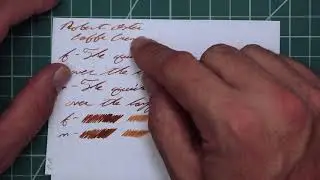 Robert Oster
Caffe Crema
f - The quick
over the la
m - The quick
over the lazy
f -
m -